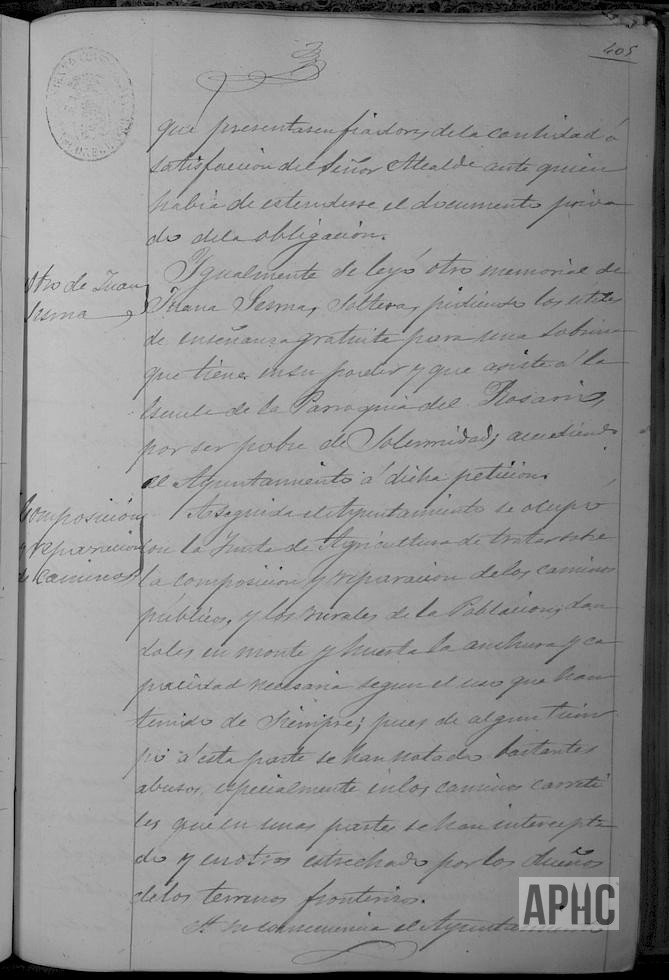 405
que presentasen fiadores de la cantidad á
satisfaccion del Señor Alcalde ante quien
habia de estenderse el documento priva
do dela obligacion.
Otro de Juana
Sesma
Igualmente se leyó otro memorial de
Juana Sesma, Soltera, pidiendo los utiles
de enseñanza gratuita para una sobrina
que tiene en su poder y que asiste á la
Escuela de la Parroquia del Rosario,
por ser pobre de Solemnidad; accediendo
el Ayuntamiento á dicha peticion.
Composicion
y reparacion
de caminos
Aseguida el Ayuntamiento se ocupó
con la Junta de Agricultura de tratar sobre
la composicion y reparacion delos caminos
públicos, y los rurales de la Poblacion, dan
doles en monte y huerta la anchura y ca
pacidad necesaria segun el uso que han
tenido de siempre; pues de algun tiem
po á esta parte se han notado bastantes
abusos, especialmente enlos caminos carreti
les que en unas partes se han intercepta
do y en otros estrechado por los dueños
delos terrenos fronterizos.
En su consecuencia el Ayuntamiento
APHC